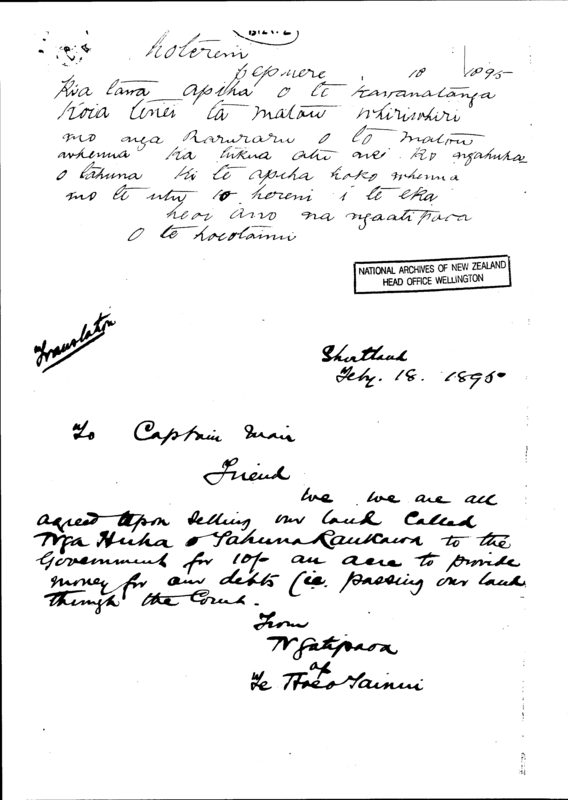 Hotereni
pepuere 18 1895
Kia tawa apiha o te kawanatanga
Koia tenei ta matou whiriwhiri
mo nga Raruraru o to matou
whenua ka tukua atu nei ko ngahuha
o tahuna ki te apiha hoko whenua
mo te utu 10 hereni i te eka
heoi ano na ngaatipaoa
o te hoeotainui
NATIONAL ARCHIVES OF NEW ZEALAND
HEAD OFFICE WELLINGTON
Translation
Shortland
Feby. 18. 1895
To Captain Mair
Friend
We we are all
agreed upon selling our land called
Nga Huha o Tahuna Raukawa to the
Government for 10/- an acre to provide
money for our debts (i.e. passing our land
through the Court.
From
Ngatipaoa
of
Te Hoeo Tainui